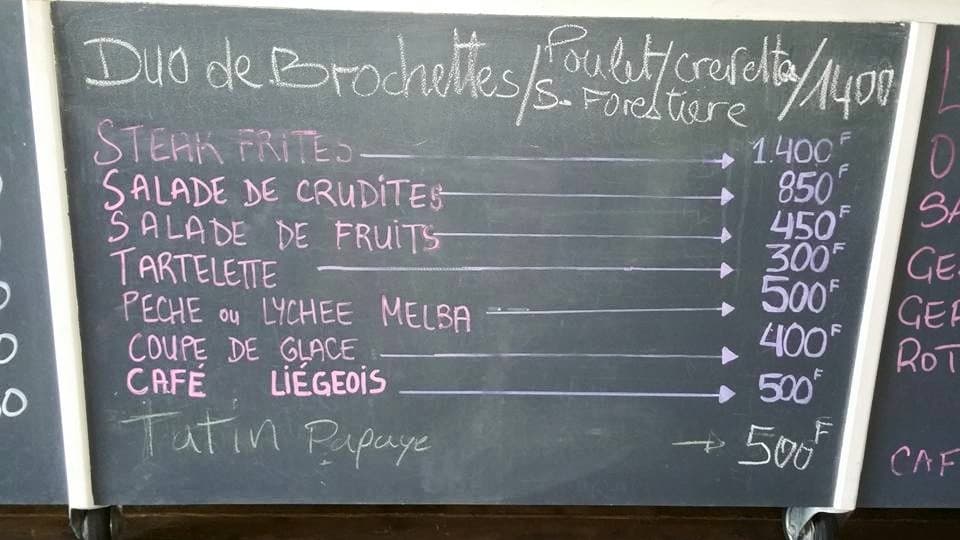 Duo de Brochettes / Poulet/crevette / 1400
S. Forestiere
STEAK FRITES 1.400F
SALADE DE CRUDITES 850F
SALADE DE FRUITS 450F
TARTELETTE 300F
PECHE ou LYCHEE MELBA 500F
COUPE DE GLACE 400F
CAFÉ LIÉGEOIS 500F
Tatin Papaye → 500F